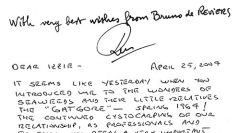 With very best wishes from Bruno de REVIERS
DEAR IZZIE - APRIL 25, 2004
IT SEEMS LIKE YESTERDAY WHEN YOU
INTRODUCED ME TO THE WONDERS OF
SEAWEEDS AND THEIR LITTLE RELATIVES
THE "GATGORE" - SPRING 1964!
THE CONTINUED CYSTOCARPING OF OUR
RELATIONSHIP, AS PROFESSIONALS AND